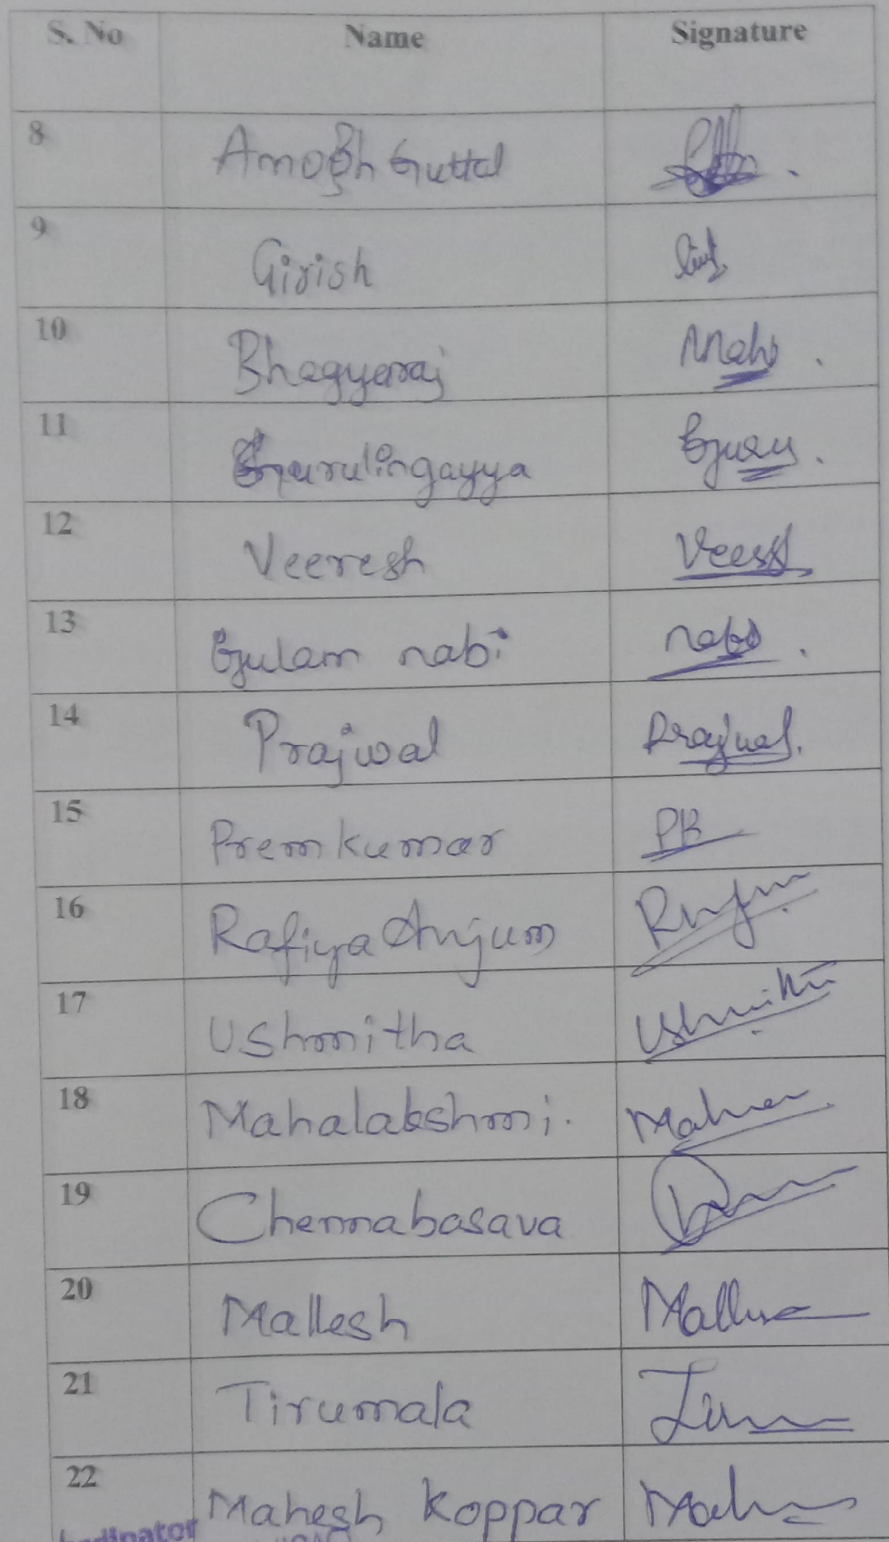 S. No Name Signature
8 Amogh Guttal
9 Girish
10 Bhagyaraj Mahi
11 Gurulingayya Guru
12 Veeresh
13 Gulam nabi nabi
14 Prajwal Prajwal
15 Premkumar PB
16 Rafiya Anjum
17 Ushmitha Ushmitha
18 Mahalakshmi.
19 Chennabasava
20 Mallesh
21 Tirumala
22 Mahesh Koppar